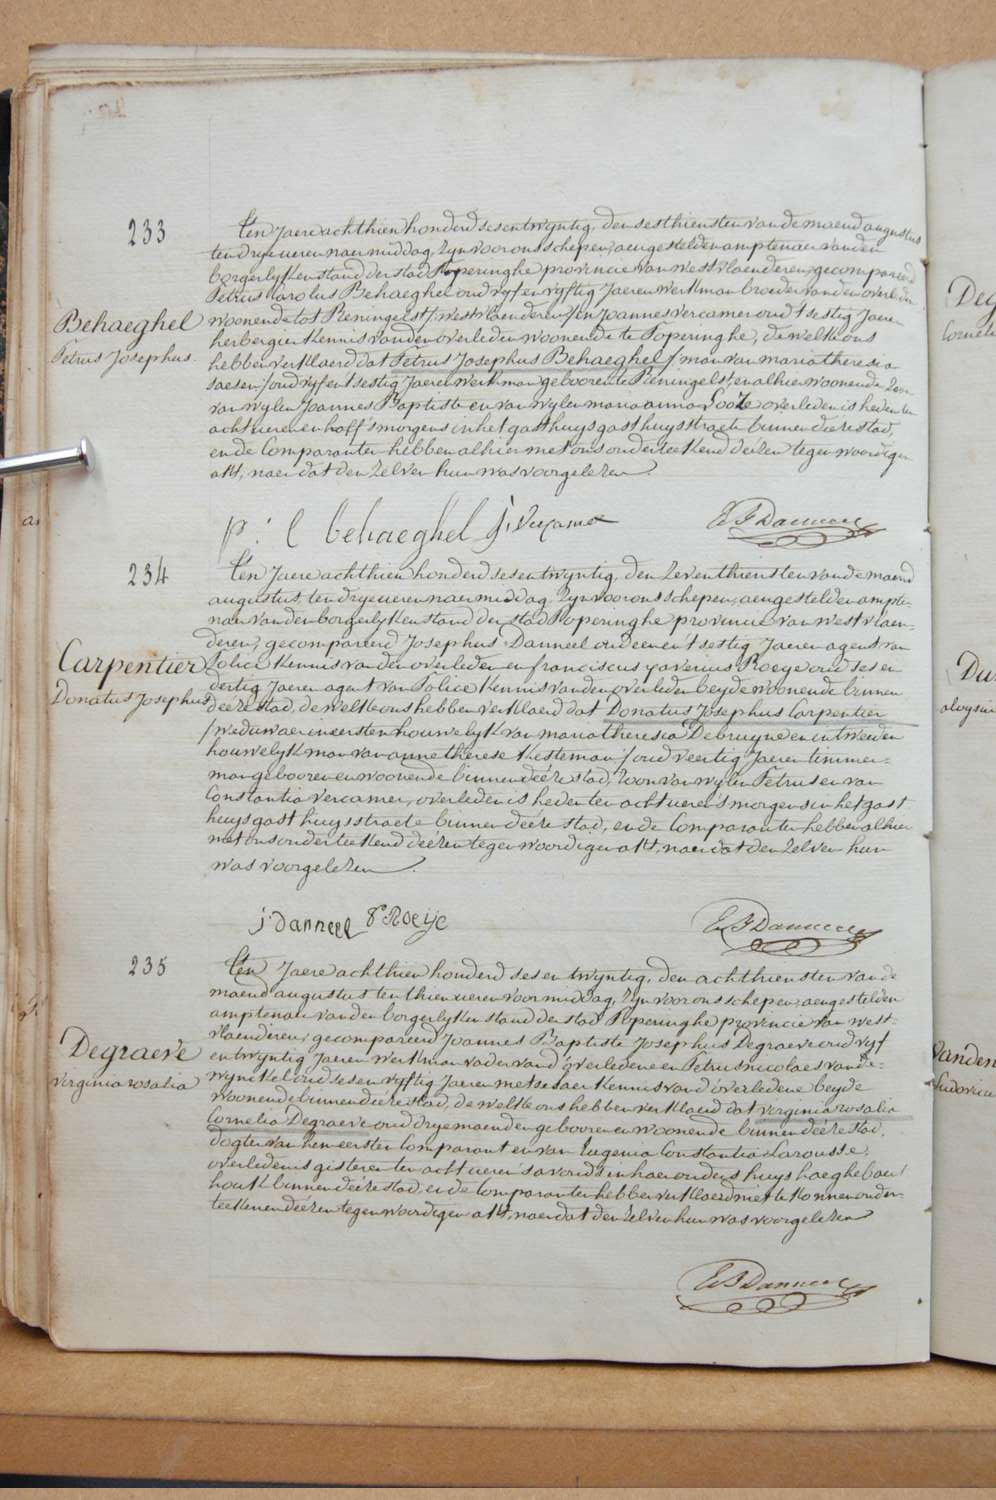 233
Ten Jaere achthien honderd sesentwyntig, den sesthiensten van de maend augustus
ten dry ueren naer middag, zyn voor ons schepen, aengestelden amptenaer van den
borgerlyken stand der stad Poperinghe provincie van westvlaenderen, gecompareerd
Petrus Carolus Behaeghel oud vyf en vyftig Jaeren werkman broeder van den overleden
woonende tot Reningelst / westvlaenderen / en Joannes Vercamer oud t'sestig Jaeren
herbergier Kennis van den overleden woonende te Poperinghe, de welke ons
hebben verklaerd dat Petrus Josephus Behaeghel / man van maria theresia
saesen / oud vyf en t'sestig Jaeren werkman gebooren te Reningelst en alhier woonende Zoon
van wylen Joannes Baptiste en van wylen maria anna Looze overleden is heden ten
acht ueren en half s'morgens in het gasthuys gasthuysstraete binnen deéze stad,
en de Comparanten hebben alhier met ons onderteekend deézen tegenwoordigen
akt, naer dat den zelven hun was voorgelezen
Behaeghel
Petrus Josephus
p : C behaeghel J. Vercamer
234
Ten Jaere achthien honderd sesentwyntig, den zeventhiensten van de maend
augustus, ten dry ueren naer middag, zyn voor ons schepen, aengestelden ampte-
naer van den borgerlyken stand der stad Poperinghe provincie van westvlaen-
deren, gecompareerd Josephus Danneel oud een en t'sestig Jaeren agent van
Police Kennis van den overleden en franciscus xaverius Roeye oud ses en
dertig Jaeren agent van Police Kennis van den overleden beyde woonende binnen
deéze stad, de welke ons hebben verklaerd dat Donatus Josephus Carpentier
/ weduwaer in eersten houwelyk van maria theresia Debruyne en in tweeden
houwelyk man van anne thérese Kesteman / oud veertig Jaeren timmer=
man gebooren en woonende binnen deéze stad, zoon van wylen Petrus en van
Constantia Vercamer, overleden is heden ten acht ueren s'morgens in het gast
huys gasthuysstraete binnen deéze stad, en de Comparanten hebben alhier
met ons onderteekend deézen tegenwoordigen akt, naer dat den zelven hun
was voorgelezen.
Carpentier
Donatus Josephus
j danneel Roeije
235
Ten Jaere achthien honderd sesentwyntig, den achthiensten van de
maend augustus ten thien ueren voormiddag, zyn voor ons schepen, aengestelden
amptenaer van den borgerlyken stand der stad Poperinghe provincie van west-
vlaenderen, gecompareerd Joannes Baptiste Josephus Degraeve oud vyf
entwyntig Jaeren werkman vader van d'overledene en Petrus nicolaes vande-
wynckel oud ses en vyftig Jaeren metsenaer Kennis van d'overledene beyde
woonende binnen deéze stad, de welke ons hebben verklaerd dat virginia rosalia
Cornelia Degraeve oud drye maenden gebooren en woonende binnen deéze stad,
dogter van hen eersten Comparant en van Eugenia Constantia Larousse,
overleden is gisteren ten acht ueren s'avonds in haer ouders huys haeghebaert
houk binnen deéze stad, en de Comparanten hebben verklaerd niet te konnen onder-
teekenen deézen tegenwoordigen akt, naer dat den zelven hun was voorgelezen
Degraeve
virginia rosalia